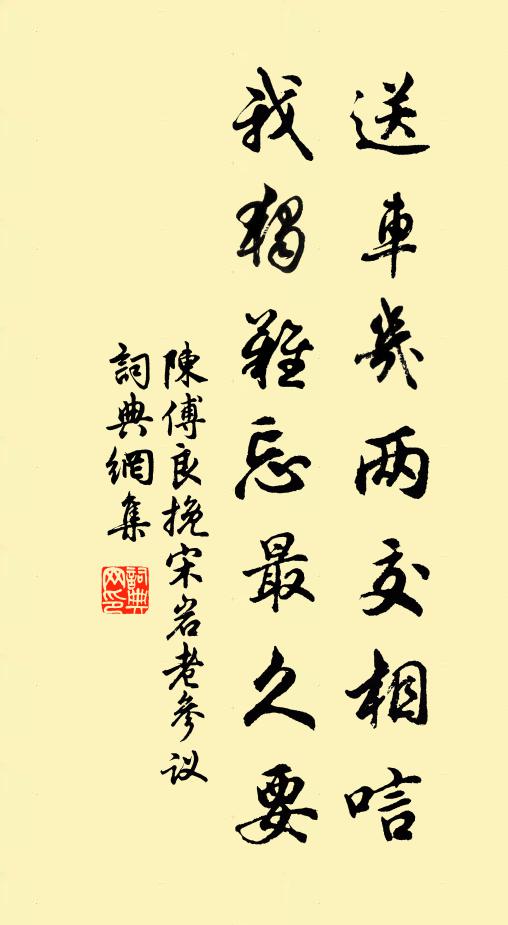 送車幾两交相唁
我獨難忘最久要
陳傅良挽宋岩老參议
詞典網集
詞典
网印